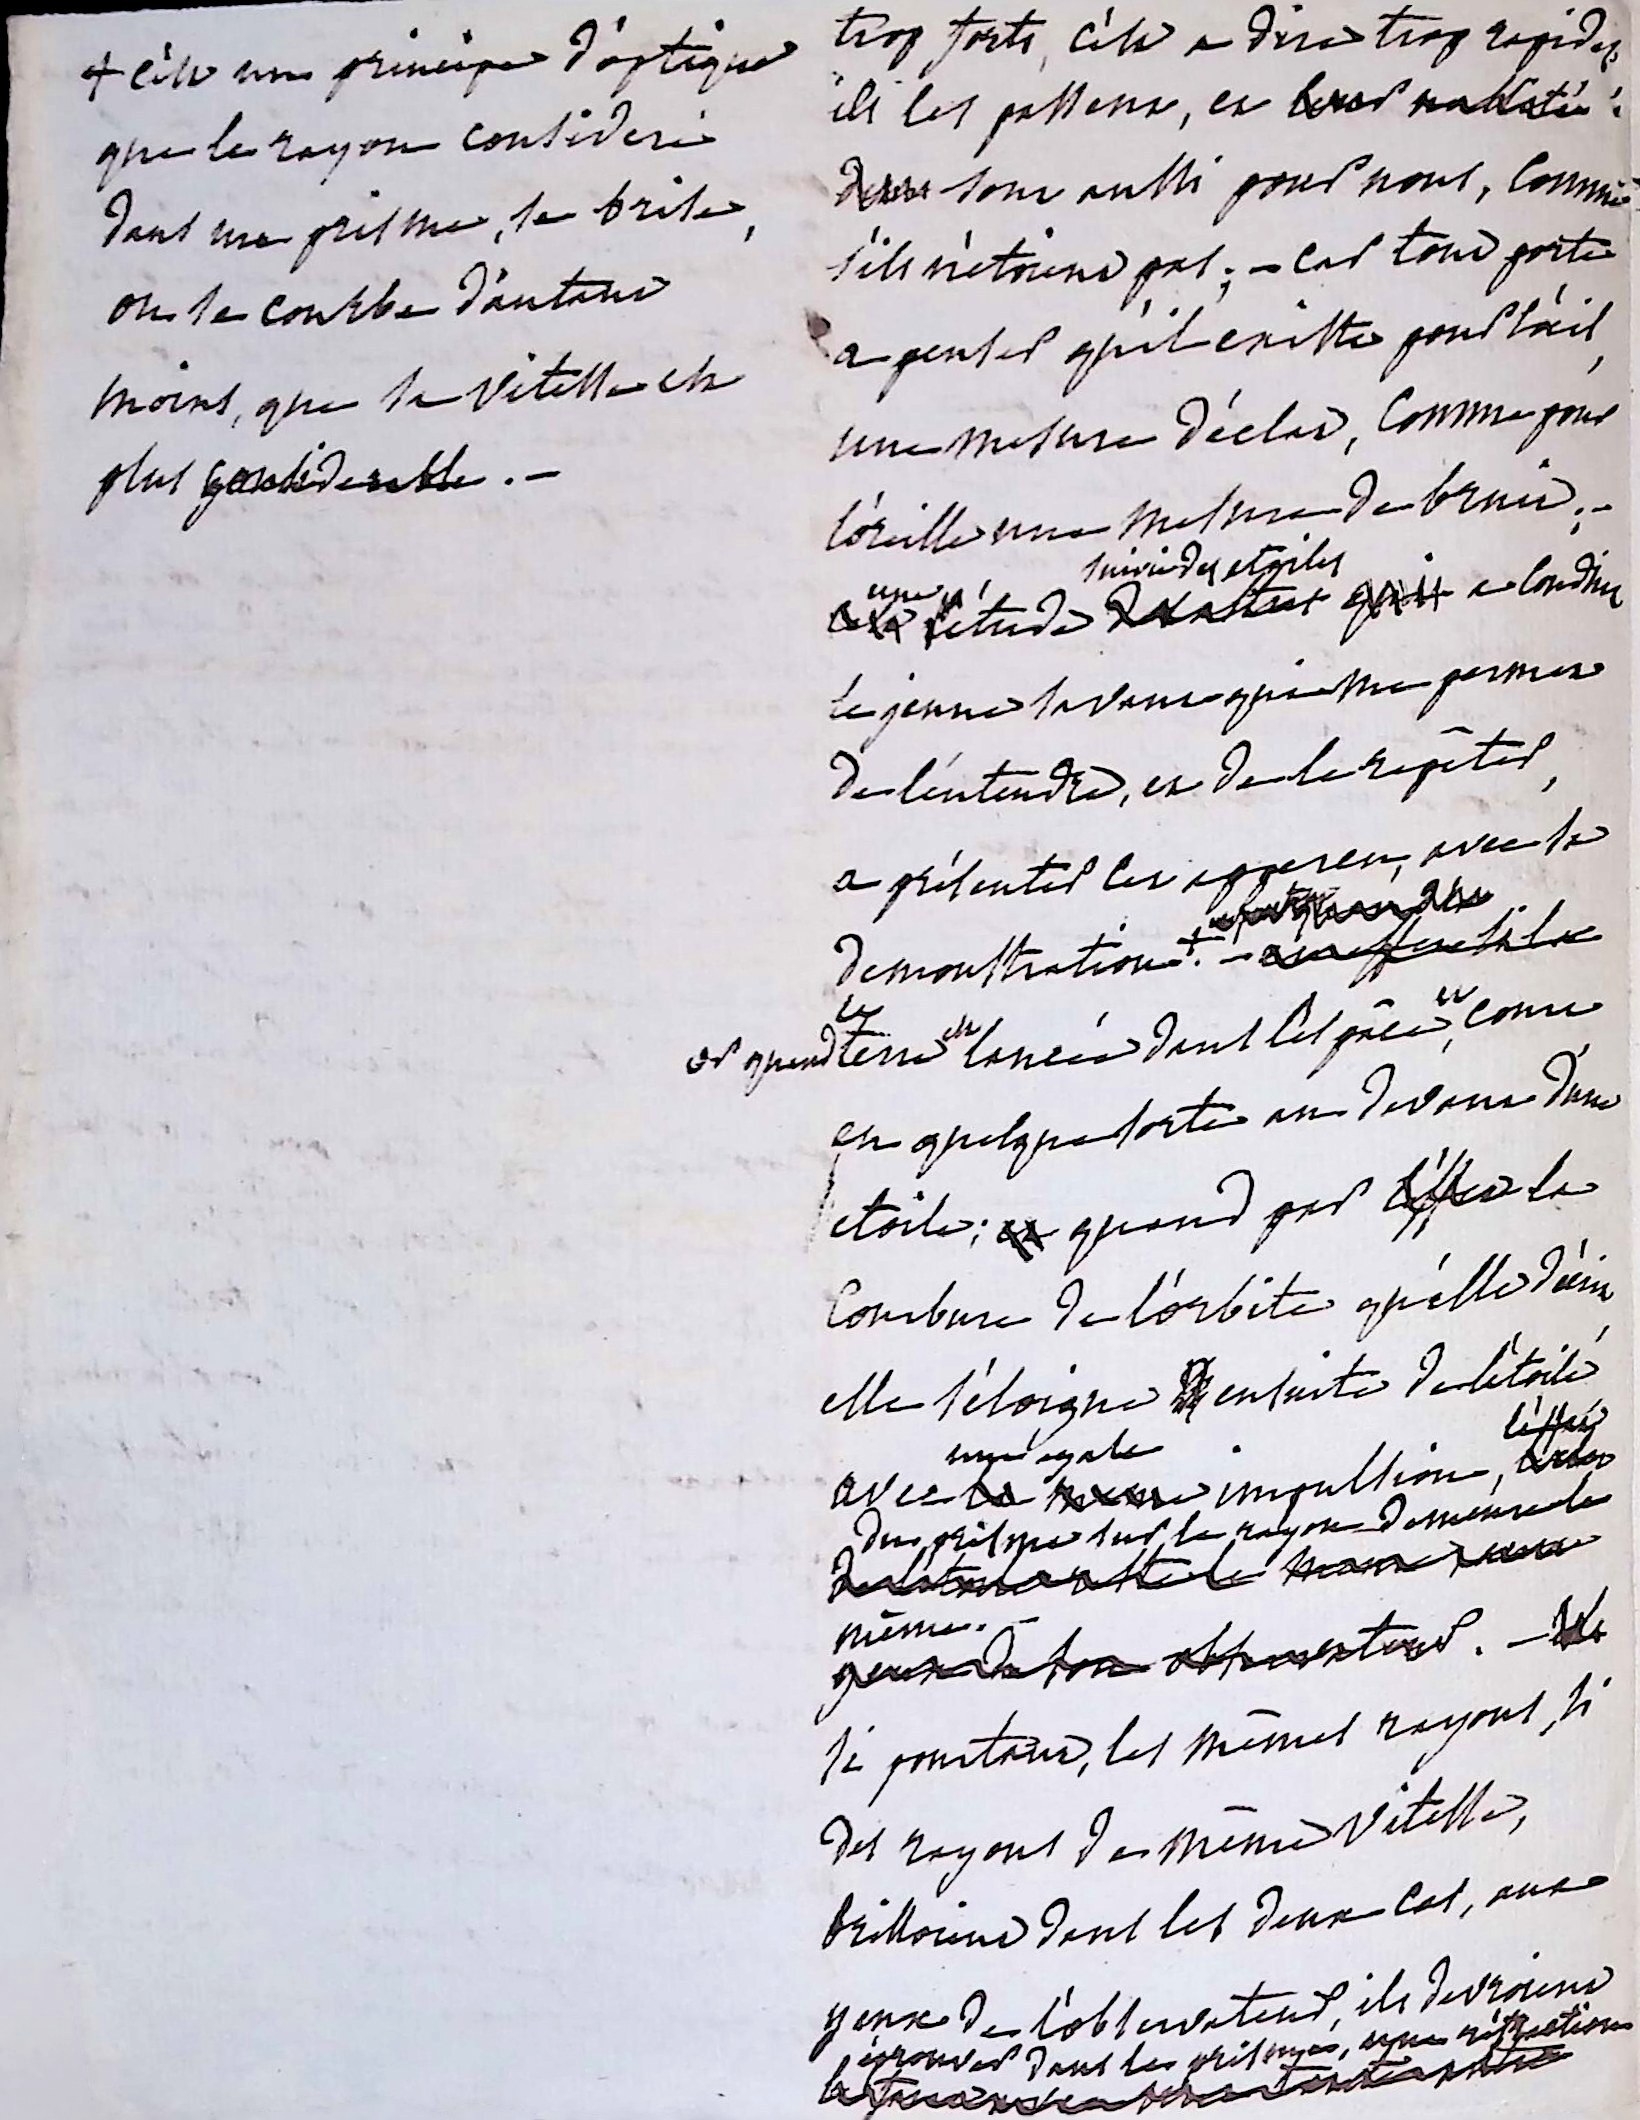 + c'est un principe d'optique
que le rayon consideré
dans un prisme, se brise,
ou se courbe d'autant
moins, que sa vitesse est
plus considerable. -
trop forts, c'est a dire trop rapides
ils les passent, et leur
sont aussi pour nous, comme
s'ils n'etoient pas; - car tout porte
a penser qu'il existe pour l'œil,
une mesure d'éclat, comme pour
l'oreille une mesure de bruit. -
une suivie des etoiles
l'étude des astres qui a conduit
le jeune savant qui me permet
de l'entendre, et de le repêter,
a présenter cet apperçu, avec sa
demonstration +. - en effet si la
la est et
or quand terre lancée dans l'espâce, court
en quelque sorte au devant d'une
etoile; et quand par l'effet la
courbure de l'orbite qu'elle décrit,
elle s'éloigne ensuite de l'étoile
une égale l'effet
avec la même impulsion,
du prisme sur le rayon demeure le
même. -
yeux de son observateur. -
si pourtant, les mêmes rayons, si
des rayons de même vitesse,
brilloient dans les deux cas, aux
yeux de l'observateur, ils devroient
éprouver dans les prismes, une réfraction